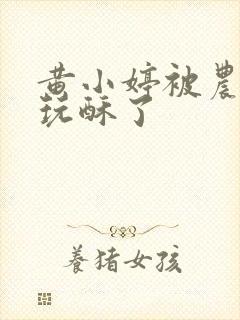 黄小婷被農
玩酥了
養猪女孩